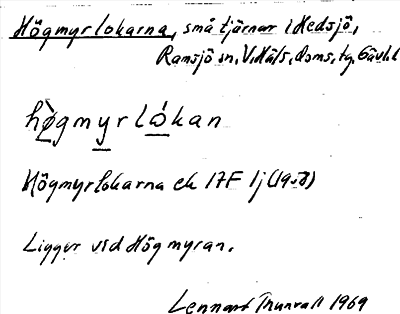 Högmyrlokarna, små tjärnar i Hedsjö,
Ramsjö sn, V. Häls. doms. tg, Gävl. l
hògmyrlókan
Högmyrlokarna ek 17F 1j (19
Ligger vid Högmyran.
Lennart Thunvall 1969